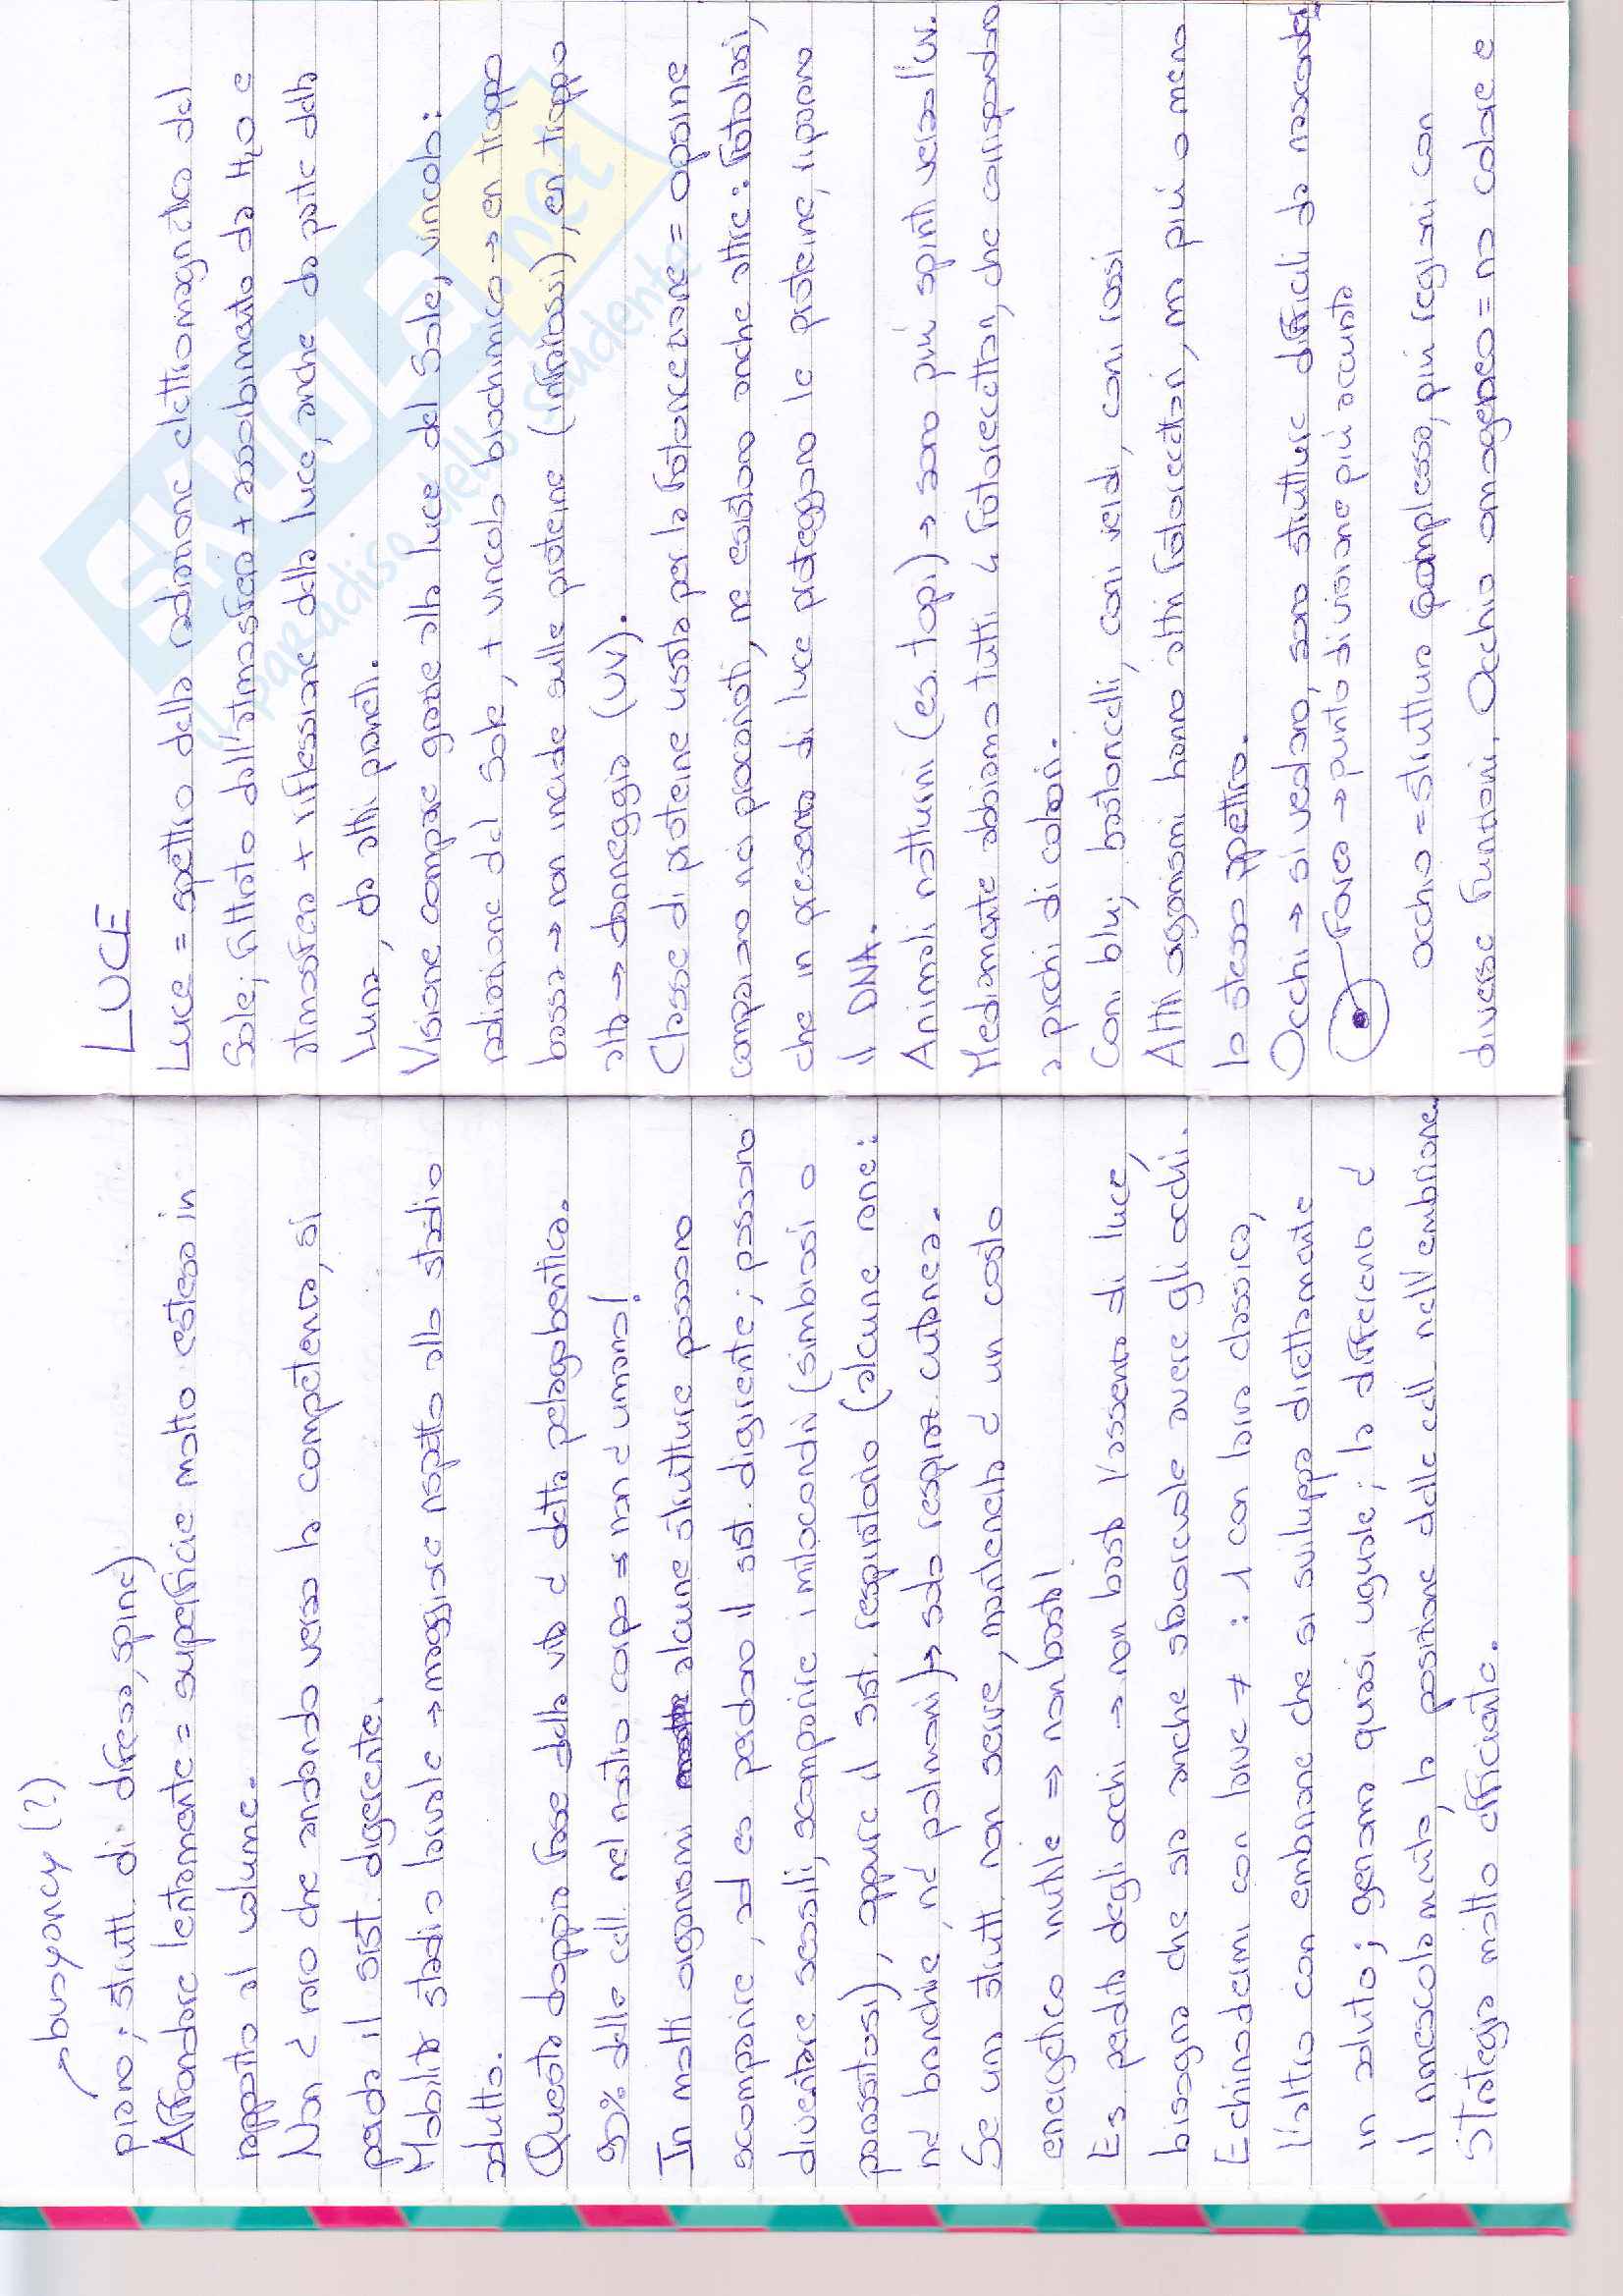 buoyancy (?)
piano; strutt. di difesa, spine)
Affondare lentamente = superficie molto estesa in
rapporto al volume.
Non è raro che andando verso la competenza, si
perda il sist. digerente.
Mobilità stadio larvale → maggiore rispetto allo stadio
adulto.
Questa doppia fase della vita è detta pelagobentica.
90% delle cell. nel nostro corpo ⇒ non è umano!
In molti organismi alcune strutture possono
scomparire, ad es perdono il sist. digerente; possono
diventare sessili, scomparire i mitocondri (simbiosi o
parassitosi), oppure il sist. respiratorio (alcune rane:
né branchie, né polmoni) → solo respiraz. cutanea.
Se una strutt. non serve, mantenerla è un costo
energetico inutile ⇒ non basta!
Es. perdita degli occhi → non basta l'assenza di luce,
bisogna che sia anche sfavorevole avere gli occhi.
Echinodermi con larve ≠ : 1 con larva classica,
l'altro con embrione che si sviluppa direttamente
in adulto; genoma quasi uguale; la differenza è
il rimescolamento, la posizione delle cell. nell'embrione.
Strategia molto efficiente.
LUCE
Luce = spettro della radiazione elettromagnetica del
Sole; filtrato dall'atmosfera + assorbimento da H₂O e
atmosfera + riflessione della luce, anche da parte della
Luna, da altri pianeti.
Visione compare grazie alla luce del Sole, vincolo:
radiazione del Sole, + vincolo biochimico → en troppo
bassa → non incide sulle proteine (infrarossi), en troppo
alta → danneggia (UV).
Classe di proteine usata per la fotorecezione = opsine
compaiono nei procarioti, ne esistono anche altre: fotoliasi,
che in presenza di luce proteggono le proteine, riparano
il DNA.
Animali notturni (es. topi) → sono più spinti verso l'UV.
Mediamente abbiamo tutti 4 fotorecettori, che corrispondono
a picchi di colori.
Coni blu; bastoncelli, coni verdi, coni rossi
Altri organismi hanno altri fotorecettori, ma più o meno
lo stesso spettro.
Occhi → si vedono, sono strutture difficili da nascondere
fovea → punto di visione più accurata
occhio = struttura complessa, più regioni con
diverse funzioni. Occhio omogeneo = no colore e